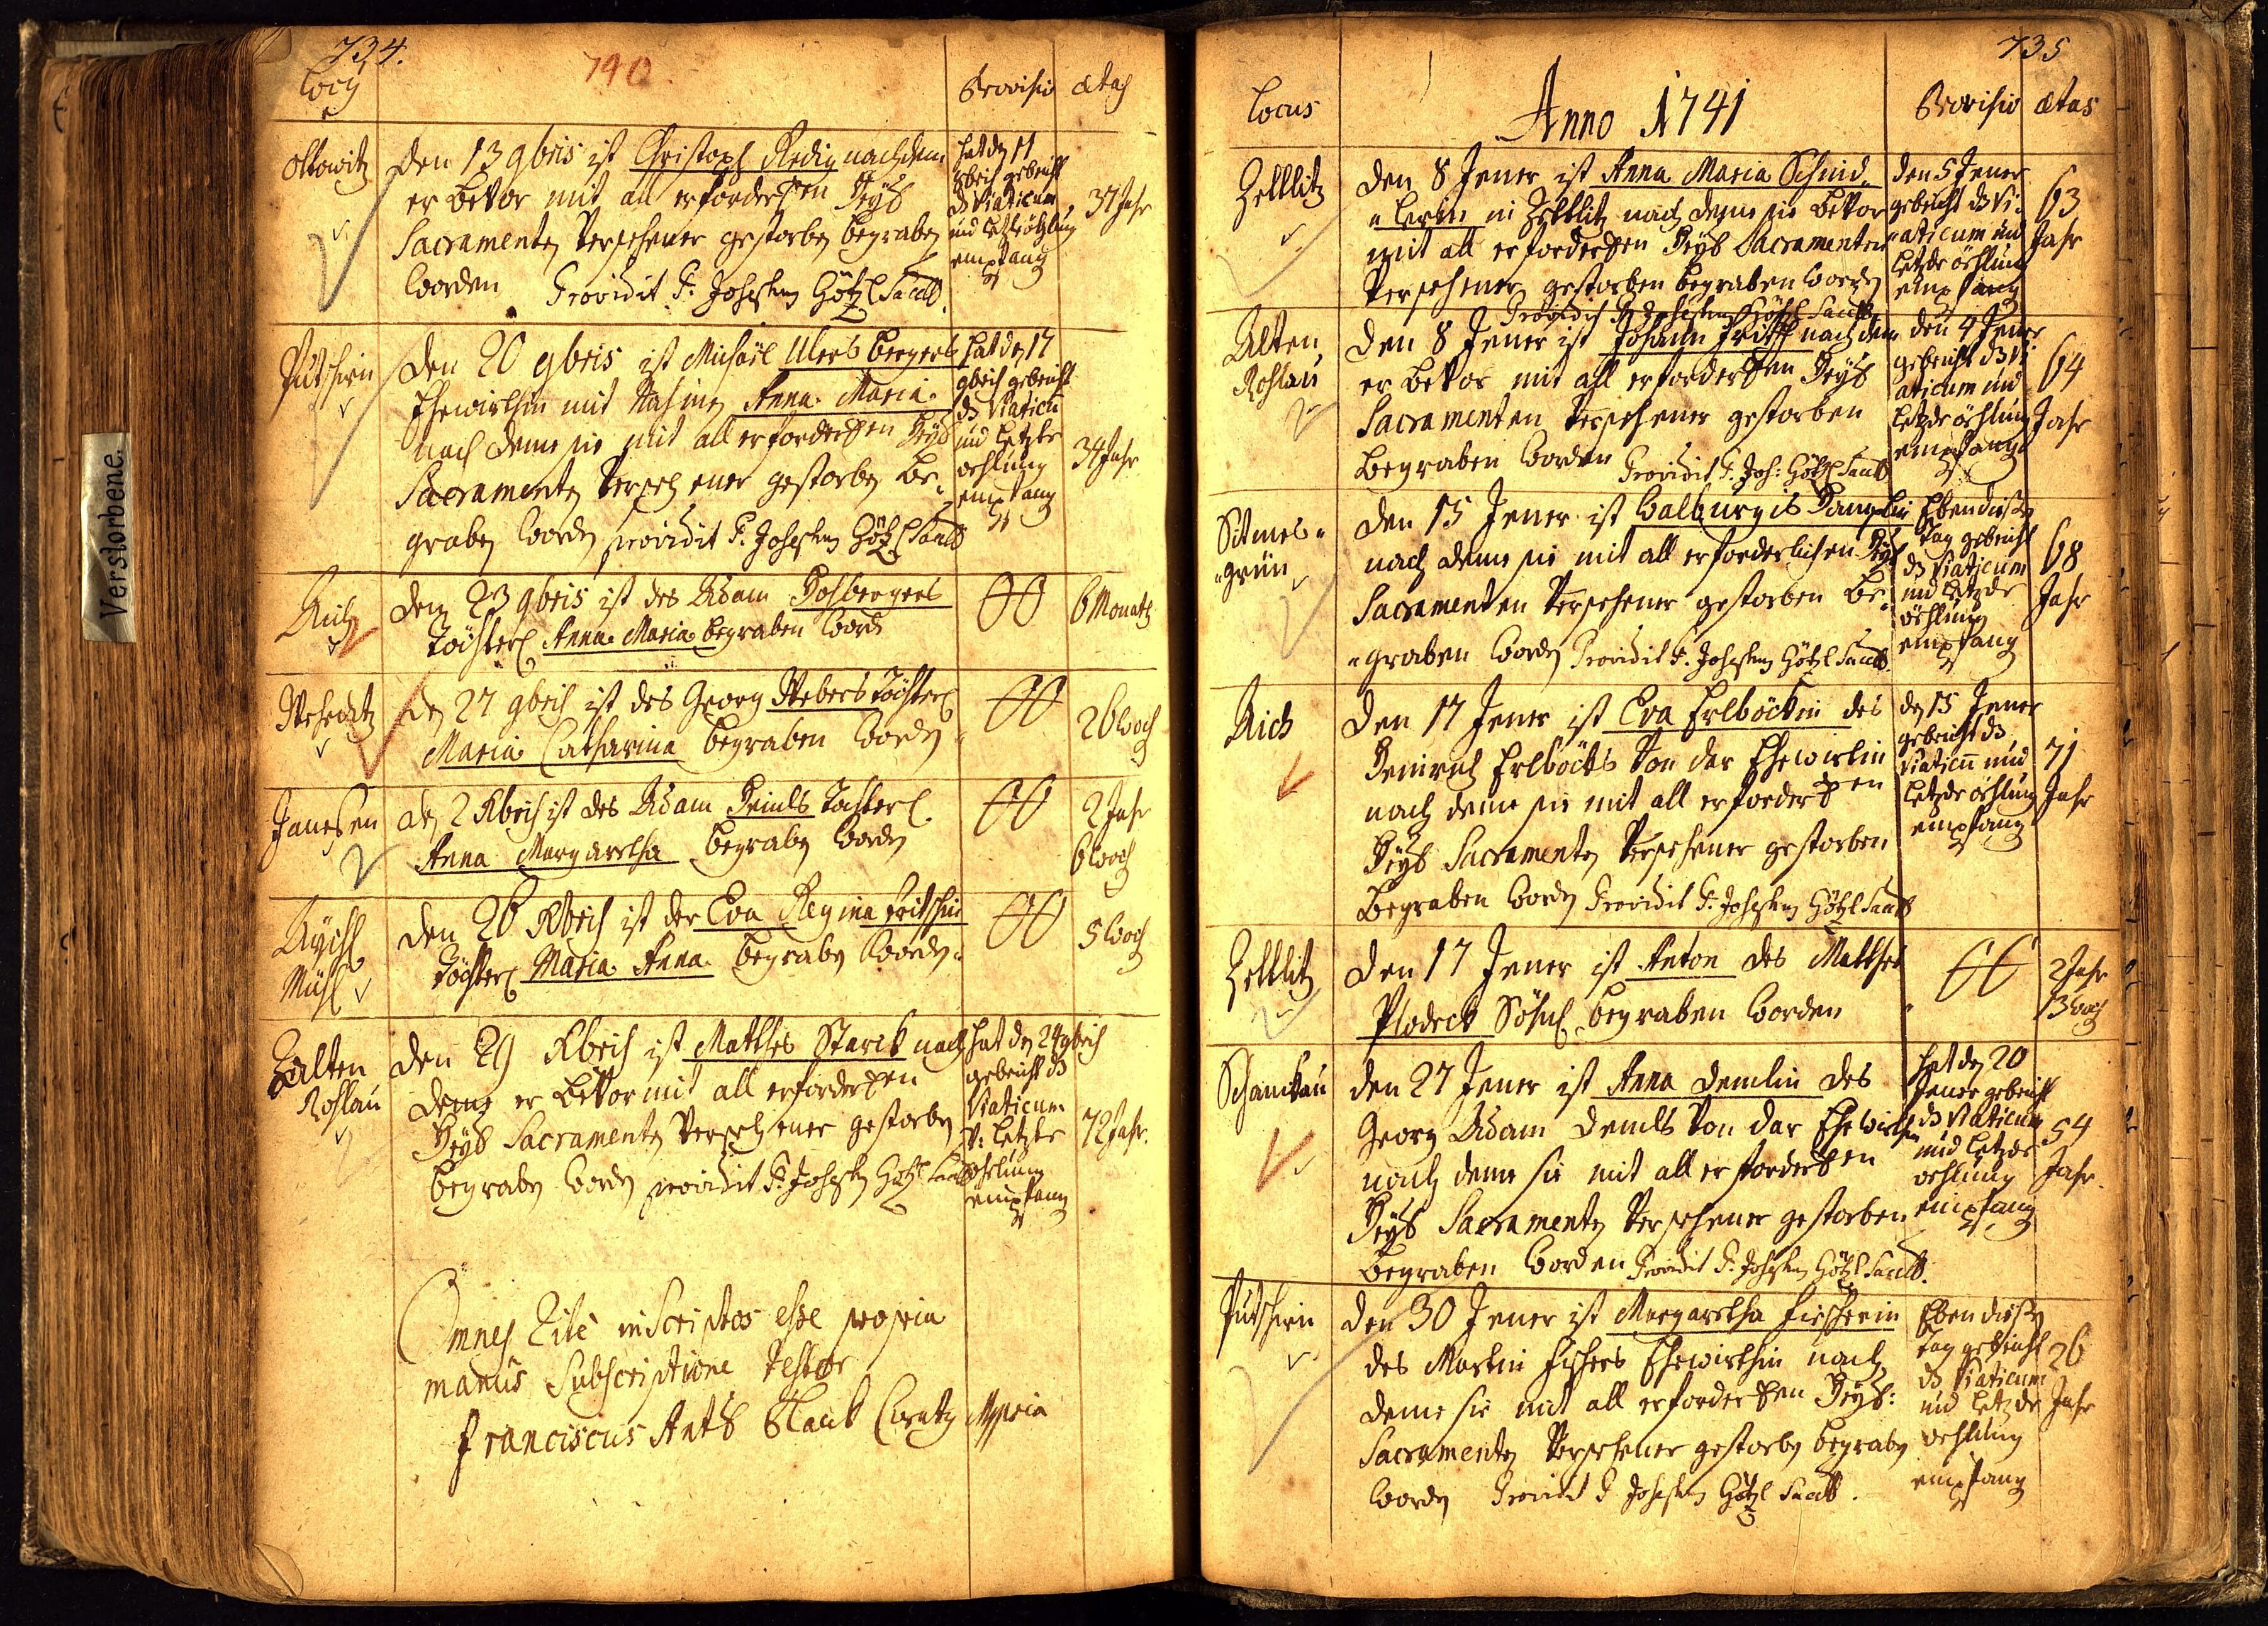 734.
190.
Locus
Provisio
ætas
Ottowitz
Den 13 9bris ist Christoph Redig nachdem
er bevor mit all erforderlen Heyl:
Sacramenten Versehener gestorben begraben
worden Providit P. Josephus Götzl Sacell.
hat den 11
9bris gebeicht
ds Viaticum
und letzte öhlung
empfang
37 Jahr
Putschirn
Den 20 9bris ist Michael Ulersbergers
Ehewirthin mit Nahmen Anna Maria
nach deme sie mit all erforderlen Heyl
Sacramenten Versehener gestorben be„
graben worden providit P. Josephus Götzl Sacell
hat den 17
9bris gebeicht
ds Viaticu
und letzte
oehlung
empfang
34 Jahr
Aich
den 23 9bris ist des Adam
Töchterl Anna Maria begraben word
6 Monath
den 27 9bris ist des Georg Webers Töchterl
Maria Catharina begraben worden
26 Woch
Janesen
den 2 Xbris ist des Adam Heinls Tochterl
Anna Margaretha begraben worden
2 Jahr
6 woch
Mühl
den 26 Xbris ist der Eva Regina Fritschin
Töchterl Maria Anna begraben worden
5 Woch
alten
Rohlau
den 29 Xbris ist Matthes Starck nach
deme er bevor mit all erforderlen
Heyl Sacramenten Versehener gestorben
begraben worden providit P. Josephus Götzl Sacell
hat den 24 9bris
gebeicht ds
Viaticum
V: letzte
öhlung
empfang
72 Jahr.
Omnes Rite inscriptos esse propria
manus Subscriptione testor
Franciscus Ant. Curatus Mppria
735
Locus
Anno 1741
Provisio
ætas
Zettlitz
Den 8 Jener ist Anna Maria Schind„
„lerin in Zettlitz nach deme sie bevor
mit all erforderlen Heyl Sacramenten
Versehener gestorben begraben worden
Providit P. Josephus Götzl Sacell
den 5 Jener
gebeicht ds Vi„
„aticum und
letzte öhlung
empfang
63
Jahr
Alten
Rohlau
Den 8 Jener ist Johann Fritsch nach dem
er bevor mit all erforderlen Heyl
Sacramenten Versehener gestorben
begraben worden Providit P. Jos: Götzl Sacell
den 4 Jener
gebeicht ds Vi
aticum und
letzte öhlung
empfang
64
Jahr
Sitmes„
„grün
den 15 Jener ist Walburgis
nach deme sie mit all erforderlichen Heyl
Sacramenten Versehener gestorben be„
„graben worden Providit P. Josephus Götzl Sacell
Eben diesen
Tag gebeicht
ds Viaticum
und letzte
öhlung
empfang
68
Jahr
Aich
Den 17 Jener ist Eva Erlböckin des
Heinrich Erlböcks Von dar Ehewirtin
nach deme sie mit all erforderlen
Heyl Sacramenten Versehener gestorben
begraben worden Providit P. Josephus Götzl Sacell
den 15 Jener
gebeicht ds
Viaticu und
letzte öhlung
empfang
71
Jahr
Zettlitz
Den 17 Jener ist Anton des Matthes
Plodeck Söhnl begraben worden
2 Jahr
13 Woch
Schanckau
den 27 Jener ist Anna Demlin des
Georg Adam Demls Von dar Ehewirthin
nach deme sie mit all erforderlen
Heyl Sacramenten Versehener gestorben
begraben worden Providit P. Josephus Götzl Sacell.
hat den 20
Jener gebeicht
ds Viaticum
und letzte
oehlung
empfang
54
Jahr.
Putschirn
den 30 Jener ist Margaretha Fischerin
des Martin Fischers Ehewirthin nach
deme sie mit all erforderlen Heyl:
Sacramenten Versehener gestorben begraben
worden Providit P Josephus Götzl Sacell.
Eben diesen
Tag gebeicht
ds Viaticum
und letzte
oehlung
empfang
26
Jahr
Verstorbene.